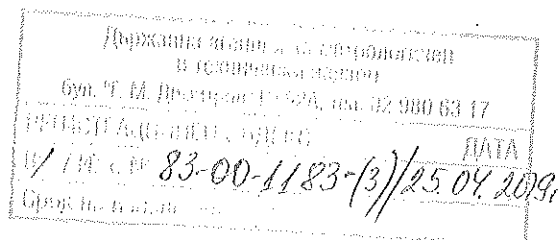 Държавна агенция за метрологичен
и технически надзор
бул. "Г. М. Димитров" 52А, тел. 02 980 63 17
РЕГИСТРАЦИОНЕН ИНДЕКС ДАТА
83-00-1183-(3)/25.04.2019г
Срок